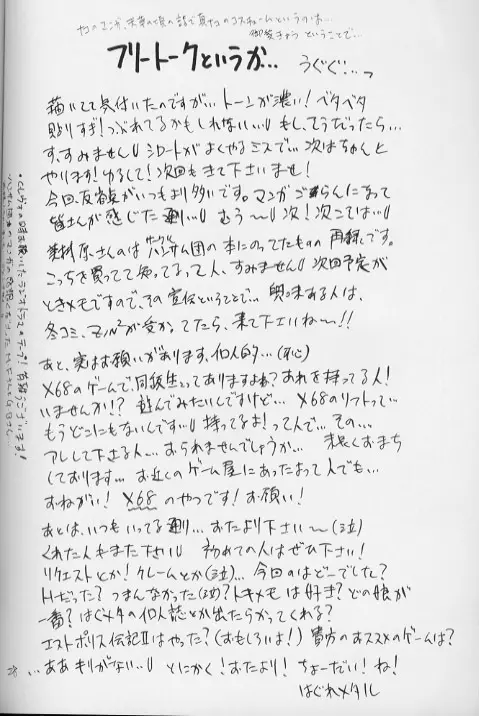 フリートークというか… うぐぐ…っ
描いてて気付いたのですが… トーンが濃い! ベタベタ
貼りすぎ! つぶれてるかもしれない… もし、そうだったら…
す、すみません シロートがよくやるミスで… 次はちゃんと
やります! ゆるして! 次回もきて下さいませ!
今回、反省点がいつもより多いです。マンガ ごらんになって
皆さんが感じた通り… むう〜 次! 次こそは…
さんのは サークル ハンサム団の本にのってたものの 再録です。
こっちを買ってて知ってるって人、すみません 次回予定が
ときメモですので、その宣伝ということで… 興味ある人は、
冬コミ、 が受かってたら、来て下さいね〜!!
あと、実はお願いがあります、個人的…(死)
X68のゲームで、同級生ってありますよね? あれを持ってる人!
いませんか!? 遊んでみたいんですけど… X68のソフトって…
もうどこにもないんです… 持ってるよ! って人で… その…
アレして下さる人… おられませんでしょうか… 末長くおまち
しております… お近くのゲーム屋にあったよって人でも…
おねがい! X68 のやつです! お願い!
あとは、いつもいってる通り… おたより下さい〜(泣)
くれた人もまた下さい 初めての人はぜひ下さい!
リクエストとか! クレームとか(泣)… 今回のはどーでした?
Hだった? つまんなかった(泣)? トキメモは好き? どの娘が
一番? はぐメタの個人誌とか出たらかってくれる?
エストポリス伝記Ⅱはやった? (おもしろいよ!) 貴方のおススメのゲームは?
…ああ きりがない… とにかく! おたより! ちょーだい! ね!
はぐれメタル